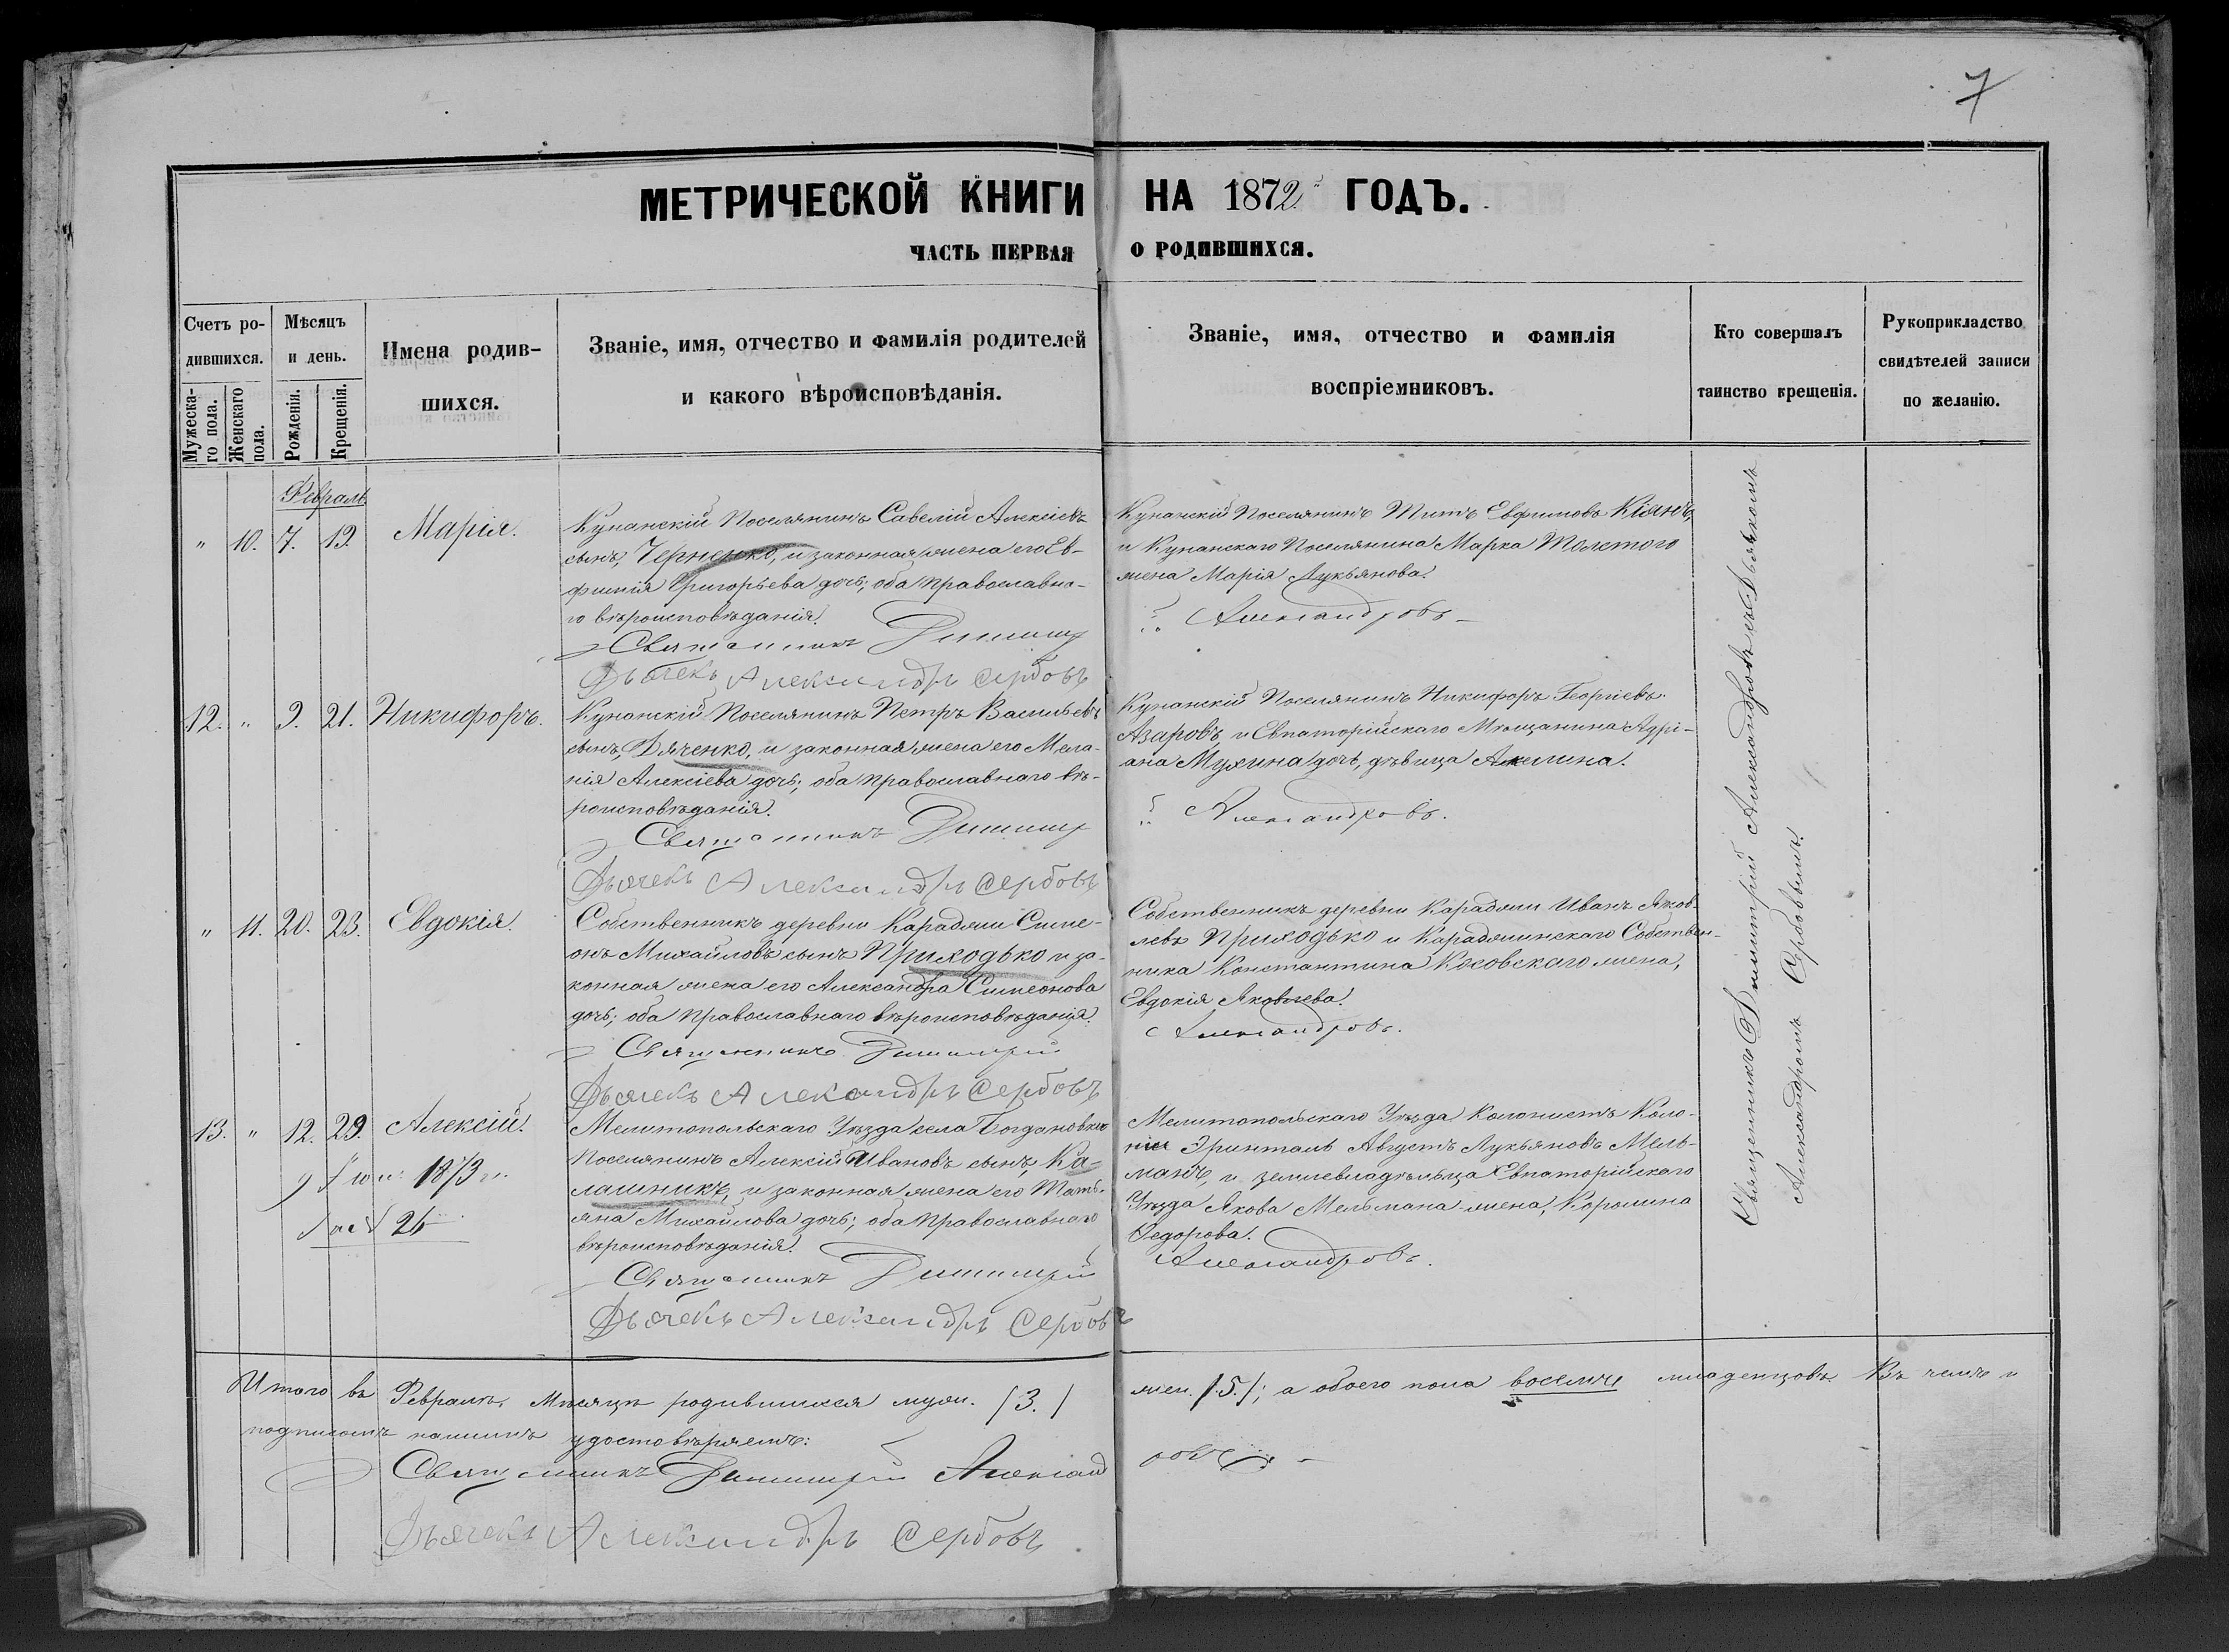 7
МЕТРИЧЕСКОЙ КНИГИ НА 1872 ГОДЪ.
ЧАСТЬ ПЕРВАЯ О РОДИВШИХСЯ.
Счетъ ро-
дившихся.
Мужеска-
го пола.
Женскаго
пола.
Мѣсяцъ
и день.
Рожденія.
Крещенія.
Имена родив-
шихся.
Званіе, имя, отчество и фамилія родителей
и какого вѣроисповѣданія.
Званіе, имя, отчество и фамилія
воспріемниковъ.
Кто совершалъ
таинство крещенія.
Рукоприкладство
свидѣтелей записи
по желанію.
Февраль.
" 10. 7. 19. Марія.
Кунанскій Поселянинъ Савелій Алексіевъ
сынъ, Черненко, и законная жена его Ев-
фимія Григорьева дочь; оба православна-
го вѣроисповѣданія.
Священникъ Димитр
Дьячекъ Александръ Сербовъ
Кунанскій Поселянинъ Титъ Евфимовъ Кіянъ,
и Кунанскаго Поселянина Марка Толстого
жена Марія Лукьянова.
Александровъ
12. " 9. 21. Никифоръ.
Кунанскій Поселянинъ Петръ Васильевъ
сынъ, Дяченко, и законная жена его Мела-
нія Алексіева дочь; оба православнаго вѣ-
роисповѣданія.
Священникъ Димитр
Дьячекъ Александръ Сербовъ
Кунанскій Поселянинъ Никифоръ Георгіевъ
Азаровъ и Евпаторійскаго Мѣщанина Адрі-
ана Мухина дочь, дѣвица Акилина.
Александровъ.
" 11. 20. 23. Евдокія.
Собственникъ деревни Караджи Симе-
онъ Михайловъ сынъ Приходько и за-
конная жена его Александра Симеонова
дочь; оба православнаго вѣроисповѣданія.
Священникъ Димитрій
Дьячекъ Александръ Сербовъ
Собственникъ деревни Караджи Иванъ Яков-
левъ Приходько и Караджинскаго Собствен-
ника Константина Косовскаго жена,
Евдокія Яковлева.
Александровъ.
13. " 12. 29. Алексій.
1873 г.
26
Мелитопольскаго Уѣзда села Богдановки
поселянинъ Алексій Ивановъ сынъ, Ка-
лашникъ, и законная жена его Тать-
яна Михайлова дочь; оба православнаго
вѣроисповѣданія.
Священникъ Димитрій
Дьячекъ Александръ Сербовъ
Мелитопольскаго Уѣзда Колонистъ Коло-
ніи Эринталь Августъ Лукьяновъ Мель-
манъ, и землевладѣльца Евпаторійскаго
Уѣзда Якова Мельмана жена, Королина
Федорова.
Александровъ.
Священникъ Димитрій Александровъ съ Дьячкомъ
Александромъ Сербовымъ.
Итого въ Февралѣ Мѣсяцѣ родившихся муж. /3./ жен. /5./; а обоего пола восемь младенцовъ. Въ чемъ и
подписомъ нашимъ удостовѣряемъ:
Священникъ Димитрій Александровъ
Дьячекъ Александръ Сербовъ